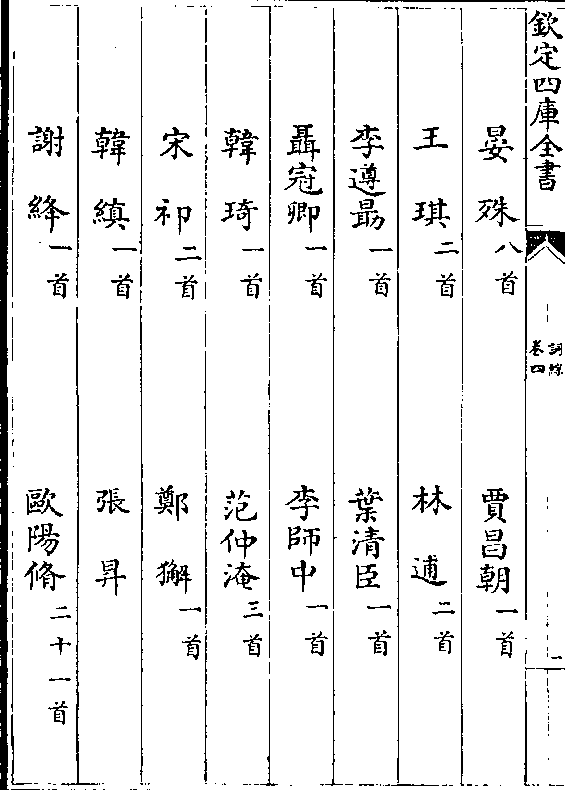 欽定四庫全書
詞綜
卷四
一
晏殊八首 賈昌朝一首
王琪二首 林逋二首
李遵勗一首 葉清臣一首
聶冠卿一首 李師中一首
韓琦一首 范仲淹三首
宋祁二首 鄭獬一首
韓縝一首 張昇
謝絳一首 歐陽脩二十一首